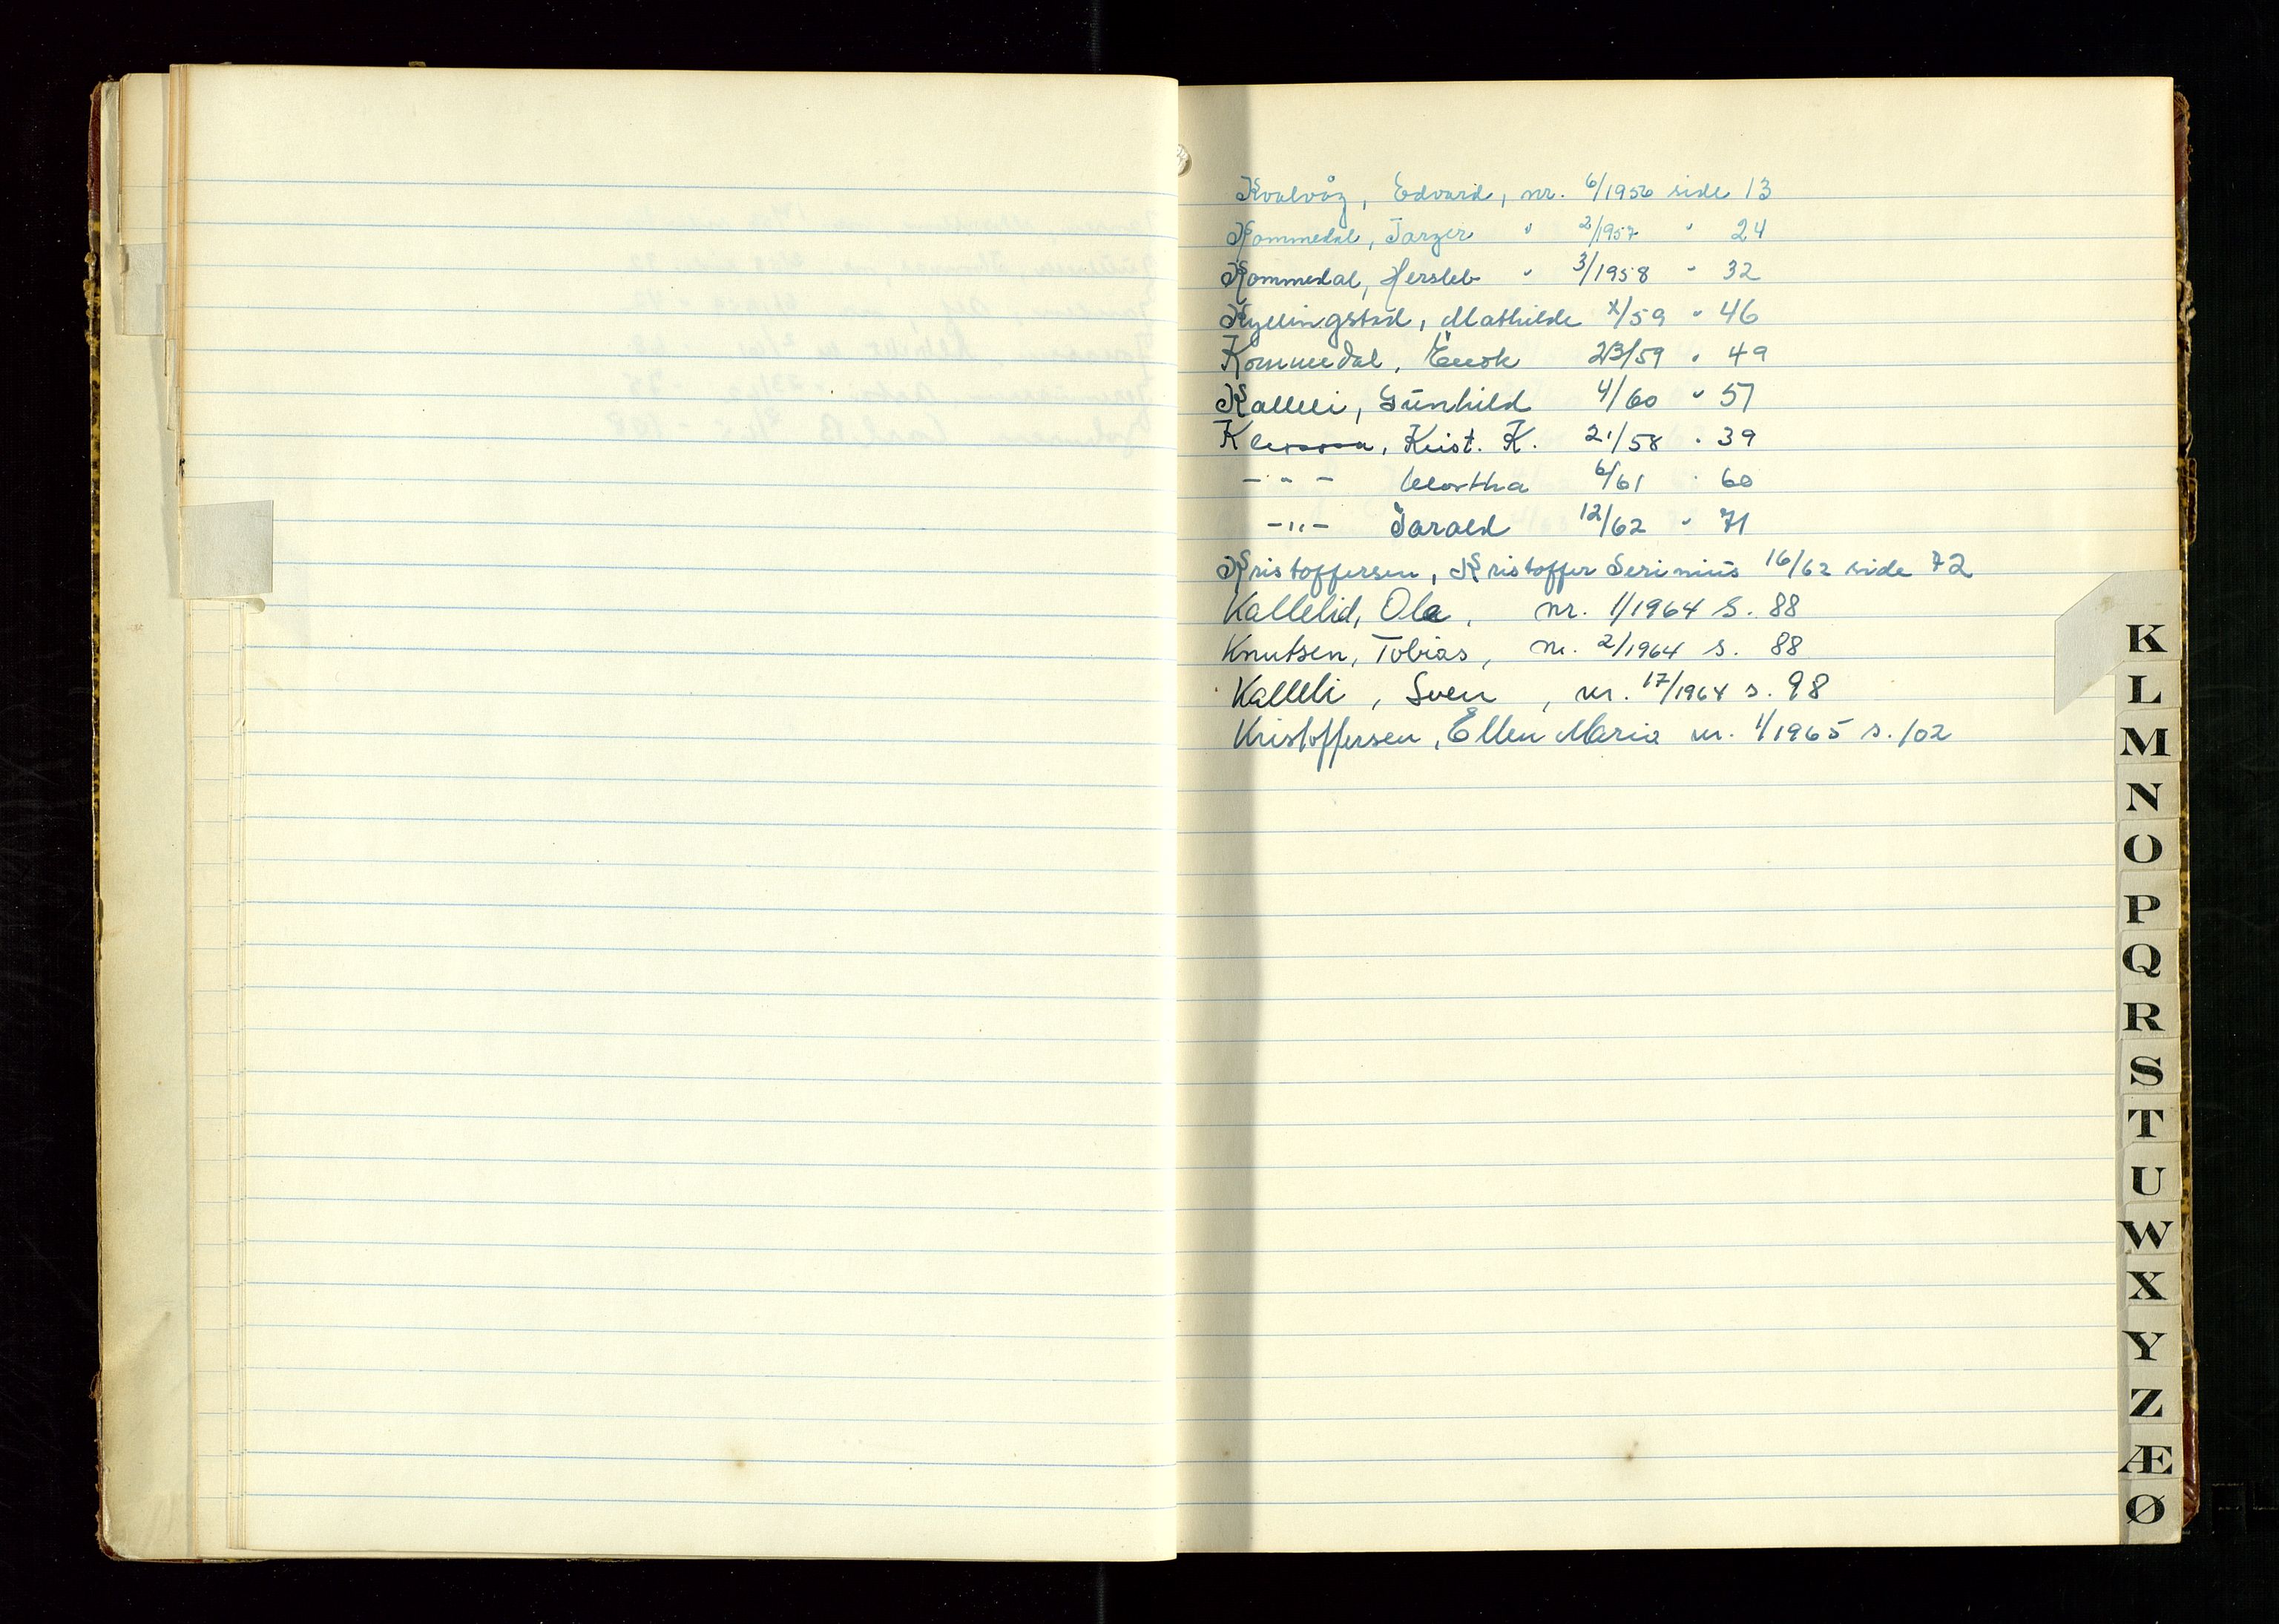 Kvalvåg, Edvard, nr. 6/1956 side 13
Kommedal, Torger " 2/1957 " 24
Kommedal, Hersleb " 3/1958 " 32
Kyllingstad, Mathilde X/59 " 46
Kommedal, Enok 23/59 " 49
Kalleli, Gunhild 4/60 " 57
Klessa, Krist. K. 21/58 " 39
- " - Martha 6/61 " 60
- " - Tarald 12/62 " 71
Kristoffersen, Kristoffer Serinius 16/62 side 72
Kallelid, Ola, nr. 1/1964 S. 88
Knutsen, Tobias, nr. 2/1964 s. 88
Kalleli, Sven, nr. 17/1964 s. 98
Kristoffersen, Ellen Maria nr. 1/1965 s. 102
K
L
M
N
O
P
Q
R
S
T
U
W
X
Y
Z
Æ
Ø